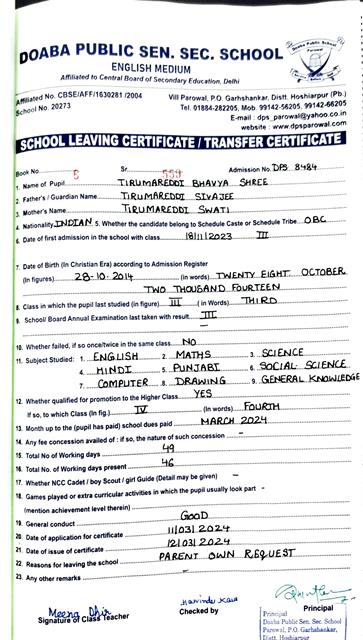 DOABA PUBLIC SEN. SEC. SCHOOL
ENGLISH MEDIUM
Affiliated to Central Board of Secondary Education, Delhi
Affiliated No. CBSE/AFF/1630281 /2004
School No. 20273
Vill Parowal, P.O. Garhshankar, Distt. Hoshiarpur (Pb.)
Tel. 01884-282205, Mob. 99142-56205, 99142-66205
E-mail : dps_parowal@yahoo.co.in
website : www.dpsparowal.com
SCHOOL LEAVING CERTIFICATE / TRANSFER CERTIFICATE
Book No. 6 Sr. 559 Admission No. DPS 8484
1. Name of Pupil TIRUMAREDDI BHAVYA SHREE
2. Father's / Guardian Name TIRUMAREDDI SIVAJEE
3. Mother's Name TIRUMAREDDI SWATI
4. Nationality INDIAN 5. Whether the candidate belong to Schedule Caste or Schedule Tribe OBC
6. Date of first admission in the school with class 18/11/2023 III
7. Date of Birth (In Christian Era) according to Admission Register
(In figures) 28-10-2014 (in words) TWENTY EIGHT OCTOBER
TWO THOUSAND FOURTEEN
8. Class in which the pupil last studied (in figure) III ( in Words) THIRD
9. School/ Board Annual Examination last taken with result III
10. Whether failed, if so once/twice in the same class NO
11. Subject Studied: 1. ENGLISH 2. MATHS 3. SCIENCE
4. HINDI 5. PUNJABI 6. SOCIAL SCIENCE
7. COMPUTER 8. DRAWING 9. GENERAL KNOWLEDGE
12. Whether qualified for promotion to the Higher Class YES
If so, to which Class (In fig.) IV (In Words) FOURTH
13. Month up to the (pupil has paid) school dues paid MARCH 2024
14. Any fee concession availed of : if so, the nature of such concession -
15. Total No of Working days 49
16. Total No. of Working days present 46
17. Whether NCC Cadet / boy Scout / girl Guide (Detail may be given) -
18. Games played or extra curricular activities in which the pupil usually look part -
(mention achievement level therein)
19. General conduct GOOD
20. Date of application for certificate 11/03/2024
21. Date of issue of certificate 12/03/2024
22. Reasons for leaving the school PARENT OWN REQUEST
23. Any other remarks -
Meena Dhir
Signature of Class Teacher
Harvinder Kaur
Checked by
Principal
Principal
Doaba Public Sen. Sec. School
Parowal, P.O. Garhshankar,
Distt. Hoshiarpur